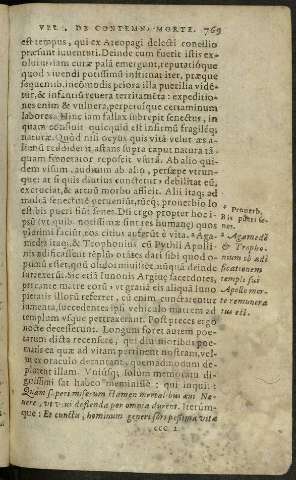 VEL, DE CONTEMN. MORTE. 769
est tempus, qui ex Areopagi delecti concilio
præsunt iuuentuti. Deinde cum fuerit istis ex-
olutus, iam curæ palá emergunt, reputatisque
quod viuendi potissimū instituat iter, præque
sequentib. incōmodis priora illa puerilia vidē-
tur, & infantis reuera territaméta: expeditio-
nes enim & vulnera, perpetuosque certaminum
labores. Hinc iam fallax subrepit senectus, in
quam confluit quicquid est infirmū fragilēq;
naturæ. Quòd nisi ocyus quis vitā velut æs a-
lienū reddiderit, astans supra caput natura tā-
quam fœnerator reposcit vsurā. Ab alio qui-
dem visum, auditum ab alio, persæpe vtrun-
que: at si quis diutius cunctetur, debilitat eū,
excruciat, & artuū morbo afficit. Alij itaq; ad
multā senectutē perueniūt, rúcq; prouerbio lo
est bis pueri fiūt senes. Dij ergo propter hoc i-
psū (vt quib. notissimæ sint res humanę) quos
plurimi faciūt, eos citius asserūt è vita. Aga-
medes itaq; & Trophonius cū Pythij Apolli-
nis ædificassent téplū, orátes dari sibi quod o-
ptimū esset, quū obdormiuissēt, nūquā deinde
surrexerūt. Sic etiā Iunonis Argiuę sacerdotes,
precante matre eorū vt gratia eis aliqua Iuno
pietatis illorū referret, cū enim cunctarentur
iumenta, succedentes ipsi vehiculo matrem ad
templum vsque pertraxerunt. Post preces ergo
nocte decesserunt. Longum foret autem poē-
tarum dicta recensere, qui diu moribus poē-
matis ea quæ ad vitam pertinent nostram, vel-
ut ex oraculo decantant, quemadmodum de-
plorent illam. Vniusq; solùm memoratu di-
gnissimi sat habeo meminisse: qui inquit:
Quàm superi miserum stamen mortalibus æui Ne
uere, vt vsui deflenda per omnia durent. Iterúm-
que: Et cunctu, hominum generi sors pessima vitæ
ccc. 1.
Prouerb.
Bis pueri se-
nes.
Agamedē
& Tropho-
nium ob ædi
ficationem
templi sui
Apollo mor-
te remunera
tus est.